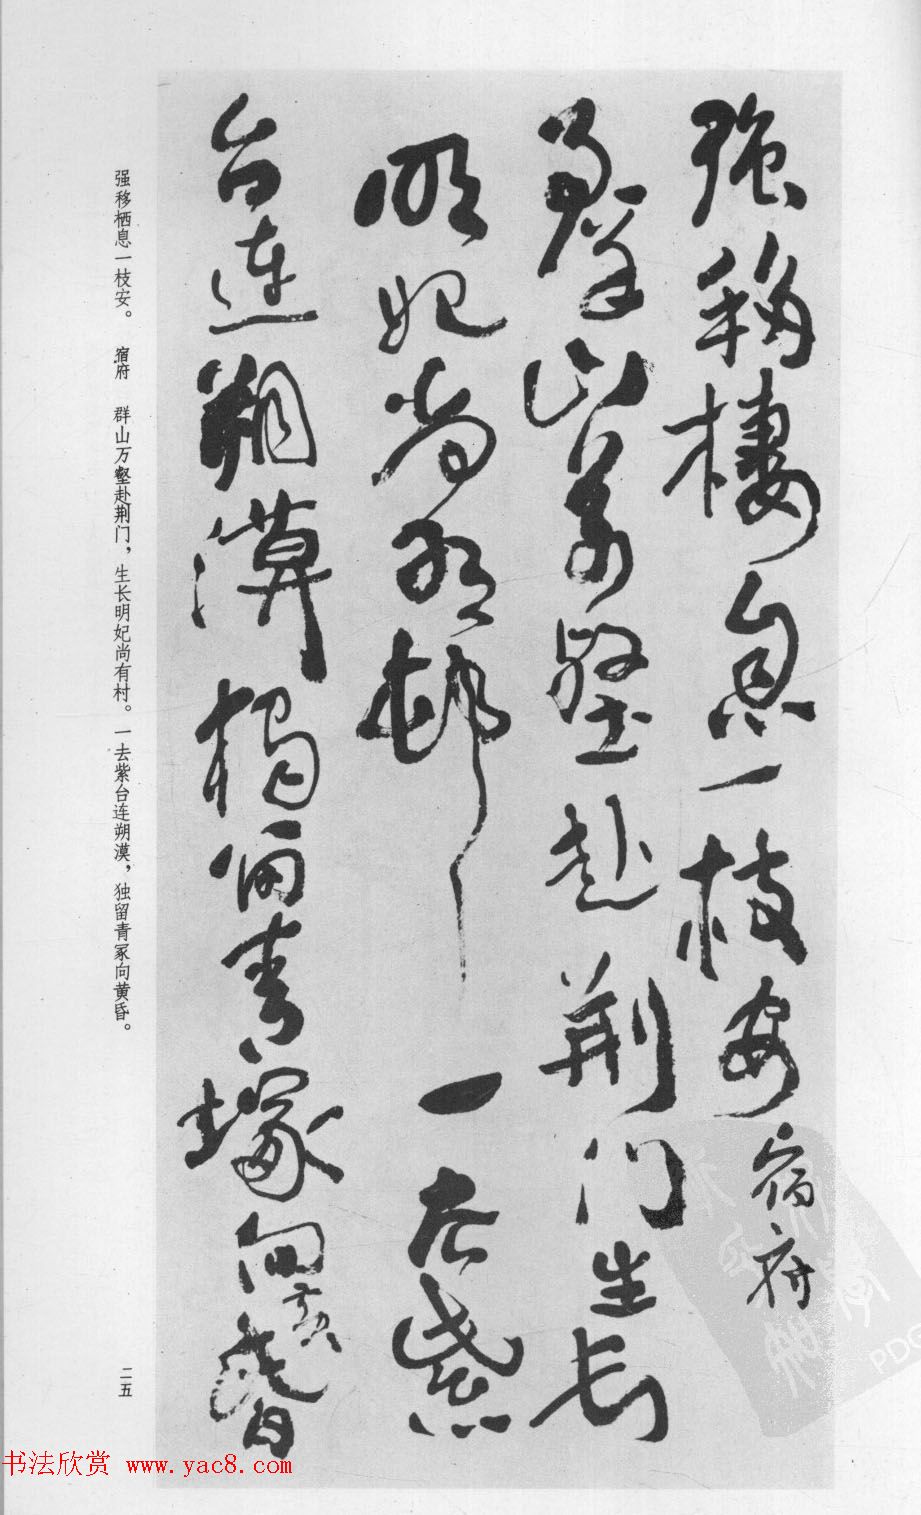 强移棲息一枝安宿府
群山万壑赴荆门生长
明妃尚有村一去紫
台连朔漠独留青塚向黄昏
强移栖息一枝安。 宿府 群山万壑赴荆门，生长明妃尚有村。一去紫台连朔漠，独留青冢向黄昏。
二五
书法欣赏 www.yac8.com
PDG